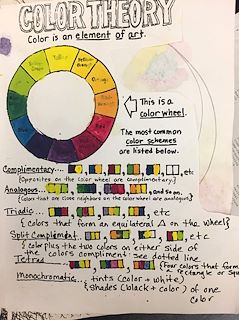 COLOR THEORY
Color is an element of art.
Yellow
Yellow-Orange
Orange
Yellow-Green
This is a
color wheel.
The most common
color schemes
are listed below.
Complimentary... , etc
(opposites on the color wheel are complimentary)
Analogous... , and so on.
(Colors that are close neighbors on the color wheel are analogous)
Triadic... , etc
{colors that form an equilateral Δ on the wheel}
Split Complement... etc
{color plus the two colors on either side of
the colors compliment: see dotted line
Tetrad (Four colors that form
a rectangle or
Monochromatic... tints (color + white)
{shades (black + color) of one
color